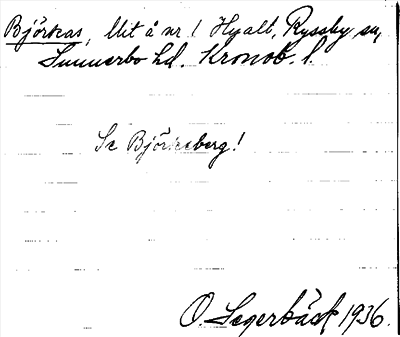 Björknas, Utit å nr 1 Hjalt, Ryssby sn,
Sunnerbo hd. Kronob. l.
Se Björnsberg!
O Segerbäck 1936.